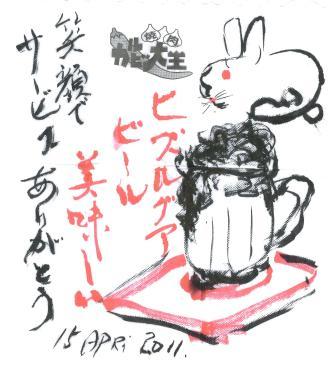 笑顔で
サービス ありがとう
焼肉
ガビン大王
ビアルグア
ビール
美味しい
15 APRi 2011.